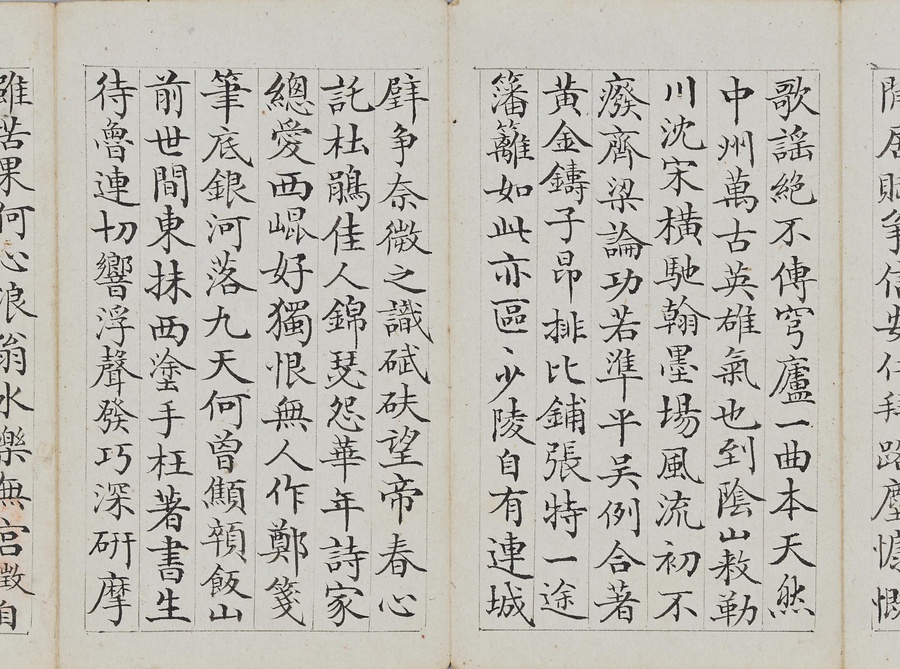 閒居賦爭信安仁拜路塵慷慨
歌謠絕不傳穹廬一曲本天然
中州萬古英雄氣也到陰山敕勒
川沈宋橫馳翰墨場風流初不
癈齊梁論功若準平吳例合著
黃金鑄子昂排比鋪張特一途
籓籬如此亦區〻少陵自有連城
璧争奈微之識碔砆望帝春心
託杜鵑佳人錦瑟怨華年詩家
總愛西崐好獨恨無人作鄭箋
筆底銀河落九天何曾顦顇飯山
前世間東抹西塗手枉著書生
待魯連切響浮聲發巧深研摩
雖苦果何心浪翁水樂無宮徵自